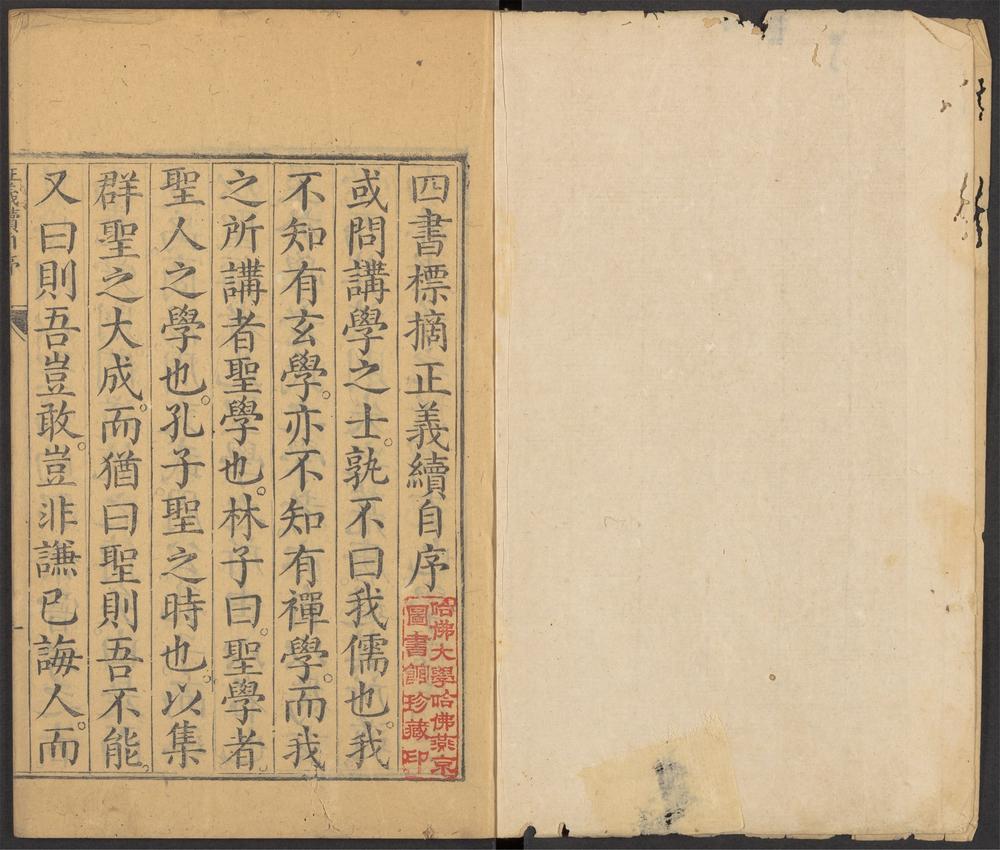 四書標摘正義續自序
哈佛大學哈佛燕京
圖書館珍藏印
或問講學之士。孰不曰我儒也。我
不知有玄學。亦不知有禪學。而我
之所講者聖學也。林子曰。聖學者。
聖人之學也。孔子聖之時也。以集
群聖之大成。而猶曰聖則吾不能。
又曰則吾豈敢。豈非謙已誨人。而